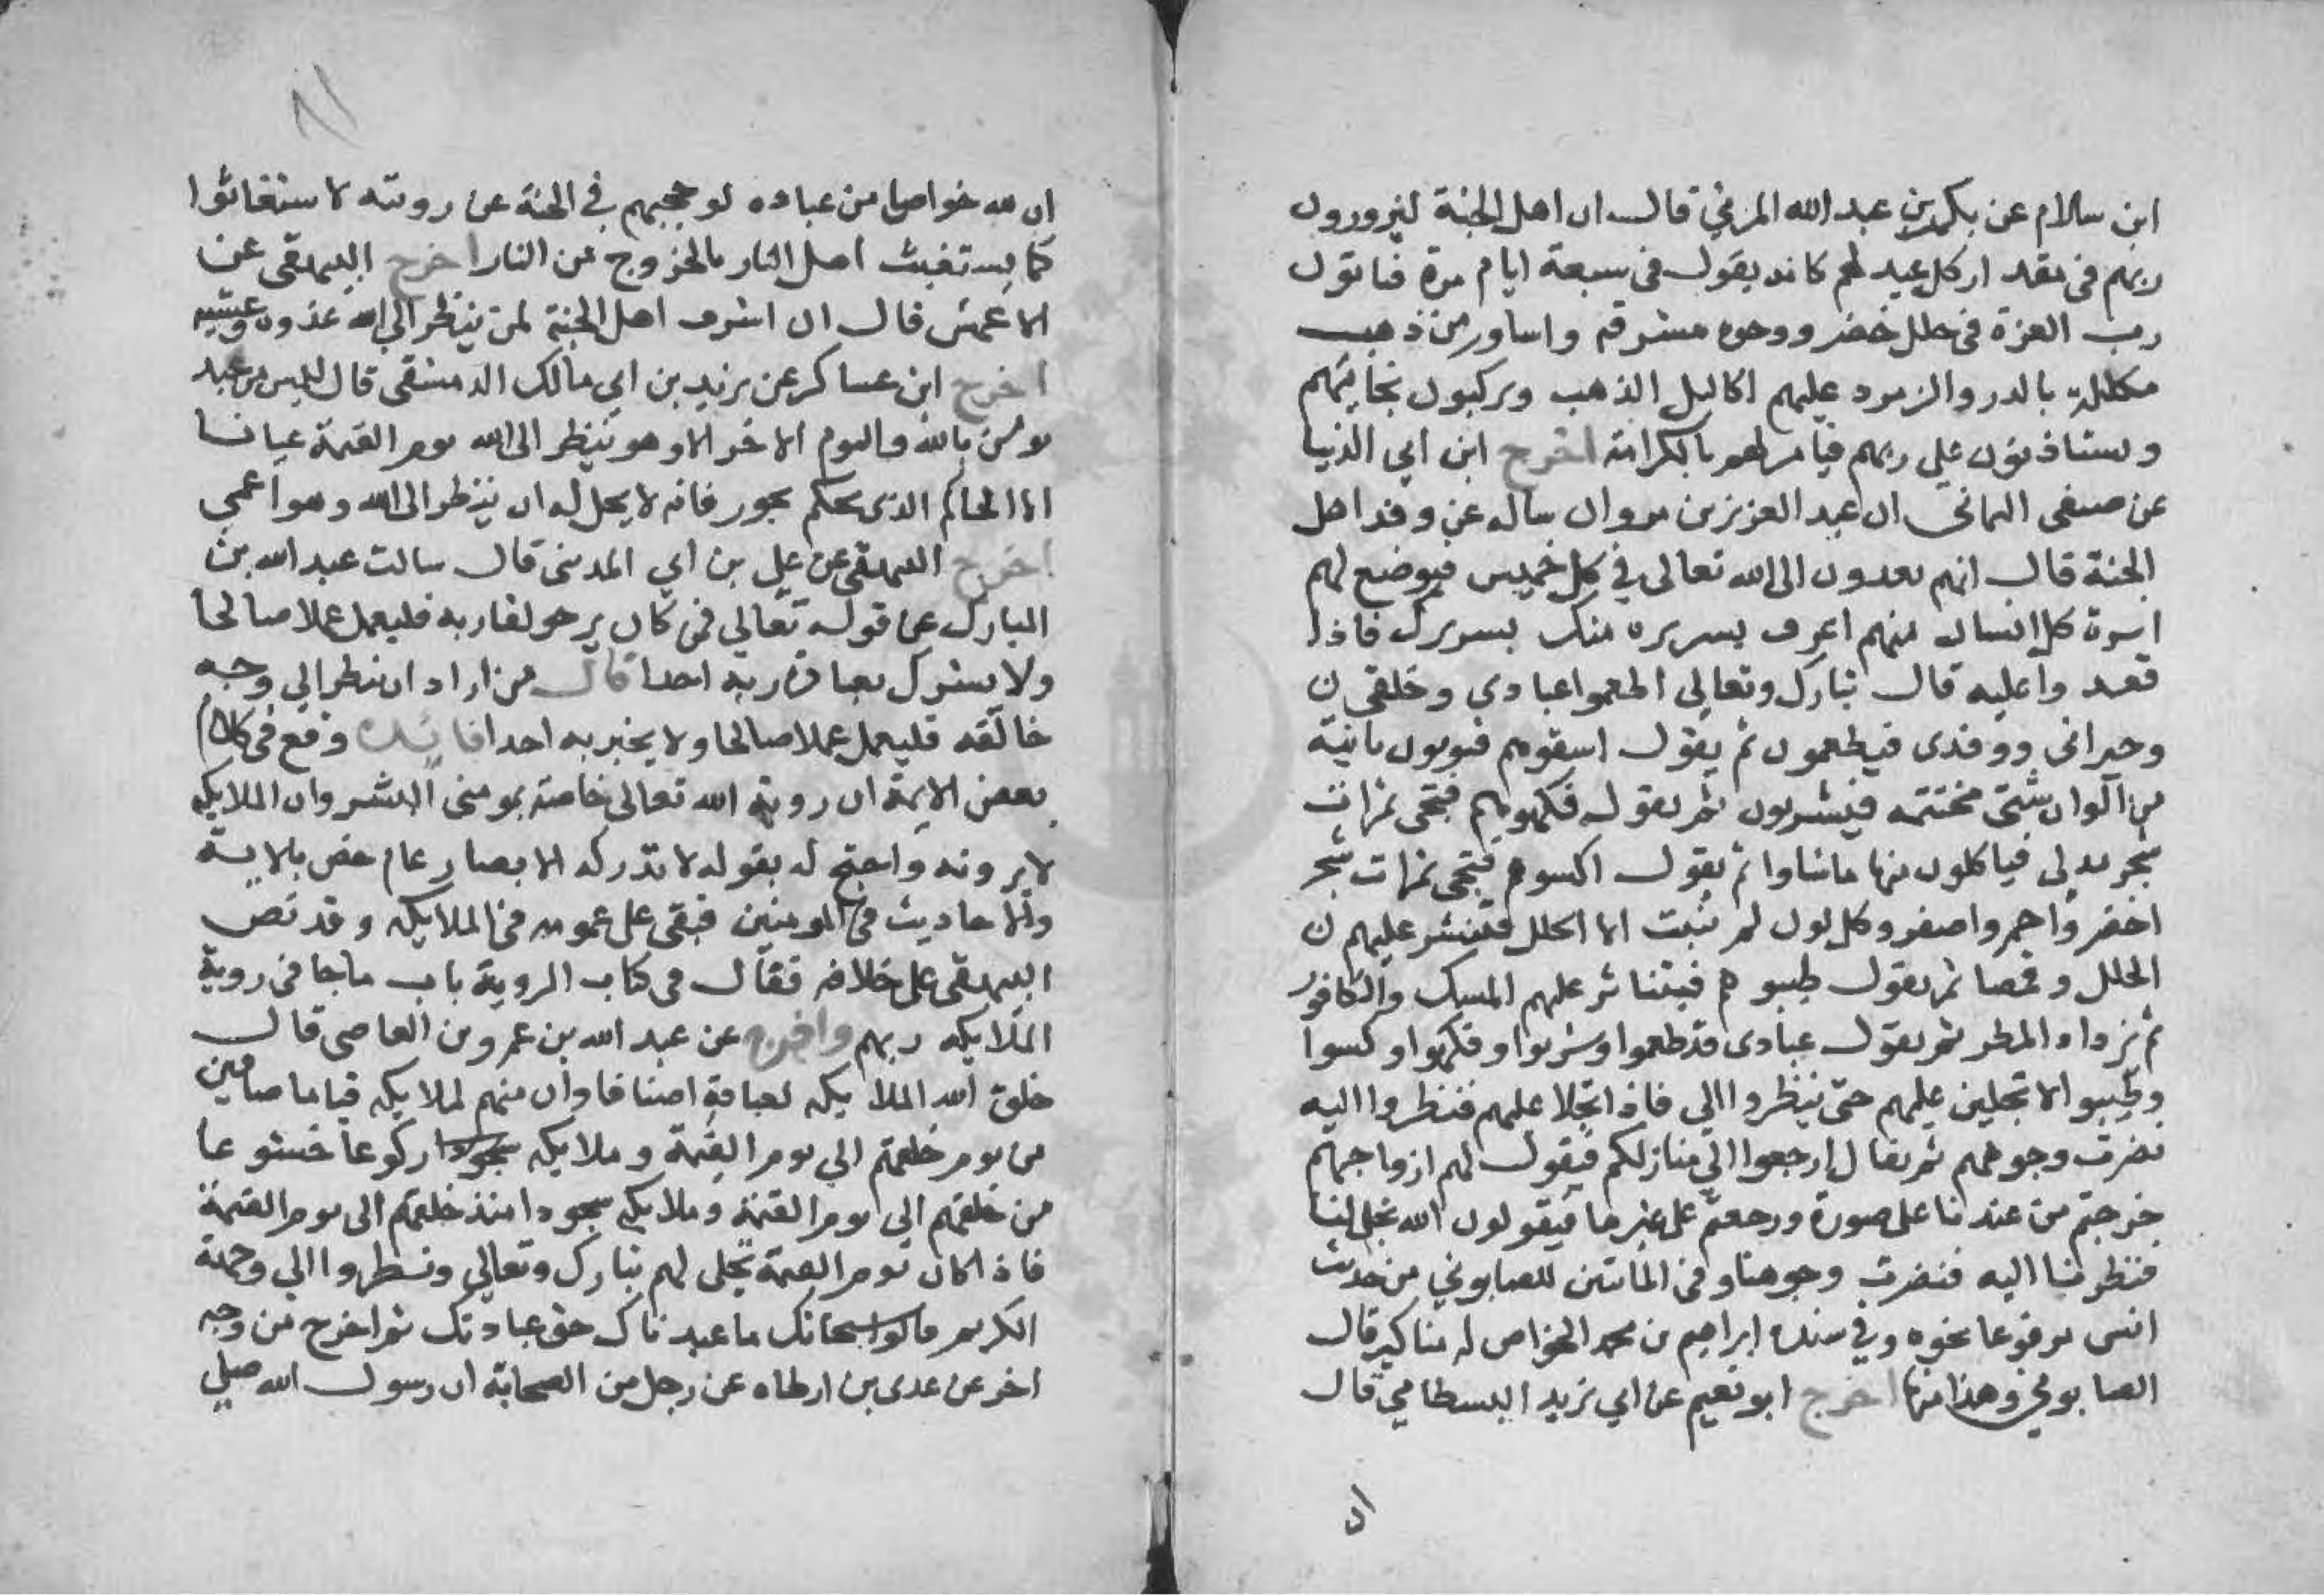 ابن سالام عن بكر بن عبد الله المزني قال ان اهل الجنة ليزورون
ربهم في مقدار كل عيد لهم كانه يقول في سبعة ايام مرة فياتون
رب العزة في حلل خضر ووجوه مشرقه واساور من ذهب
مكللة بالدر والزمرد عليهم اكاليل الذهب ويركبون نجائبهم
ويستاذنون علي ربهم فيامر لهم بالكرامة اخرج ابن ابي الدنيا
عن صيفي اليماني ان عبد العزيز بن مروان ساله عن وفد اهل
الجنة قال انهم يفدون الى الله تعالى في كل خميس فيوضع لهم
اسرة كل انسان منهم اعرف بسريره منك بسريرك فاذا
قعدوا عليه قال تبارك وتعالي اطعموا عبادي وخلقي
وجيراني ووفدي فيطعمون ثم يقول اسقوهم فيوتون بانية
من الوان شتى مختمة فيشربون ثم يقول فكهوهم فتجي ثمرات
شجر تدلي فياكلون منها ماشاوا ثم يقول اكسوهم فتجي ثمرات شجر
اخضر واحمر واصفر وكل لون لم تنبت الا الحلل فتنشر عليهم
الحلل وقمصا ثم يقول طيبوهم فيتناثر عليهم المسك والكافور
المطر ثم يقول عبادي قد طعموا وشربوا وفكهوا وكسوا
وطيبوا لاتجلين عليهم حتى ينظروا الي فاذا تجلا عليهم فنظروا اليه
نضرت وجوههم ثم يقال ارجعوا الي منازلكم فيقول لهم ازواجهم
خرجتم من عندنا على صورة ورجعتم على غيرها فيقولون الله تجلى لنا
فنظرنا اليه فنضرت وجوهنا وفي المائتين للصابوني من حديث
انس مرفوعا نحوه وفي سنده ابراهيم بن محمد الخواص له مناكير قال
الصابوني وهذا منها اخرج ابو نعيم عن ابي يزيد البسطامي قال
ان
ان لله خواصا من عباده لو حجبهم في الجنة عن رويته لاستغاثوا
كما يستغيث اهل النار بالخروج من النار اخرج البيهقي عن
الاعمش قال ان اشرف اهل الجنة لمن ينظر الي الله غدوه وعشيه
اخرج ابن عساكر عن يزيد بن ابي مالك الدمشقي قال ليس من عبد
يومن بالله واليوم الاخر الا وهو ينظر الى الله يوم القيمة عيانا
الا الحاكم الذي يحكم بجور فانه لا يحل له ان ينظر الى الله وهو اعمي
اخرج البيهقي عن علي بن ابي المدني قال سالت عبد الله بن
المبارك عن قوله تعالي فمن كان يرجو لقا ربه فليعمل عملا صالحا
ولا يشرك بعبادة ربه احدا قال من اراد ان ينظر الي وجه
خالقه فليعمل عملا صالحا ولا يخبر به احدا فائدة وقع في كلام
بعض الايمة ان روية الله تعالى خاصة بمومني البشر وان الملايكه
لا يرونه واحتج له بقوله لا تدركه الابصار عام خص بالاية
والاحاديث في المومنين فبقي على عمومه في الملايكه وقد نص
البيهقي على خلافه فقال في كتاب الروية باب ماجا في روية
الملايكه ربهم واخرج عن عبد الله بن عمرو بن العاصي قال
خلق الله الملايكه لعبادته اصنافا وان منهم لملايكه قياما صافين
من يوم خلقهم الي يوم القيمة وملايكه ركوعا خشوعا
من خلقهم الي يوم القيمة وملايكه سجودا منذ خلقهم الى يوم القيمة
فاذا كان يوم القيمة تجلى لهم تبارك وتعالي ونظروا الي وجهه
الكريم قالوا سبحانك ما عبدناك حق عبادتك ثم اخرج من وجه
اخر عن عدي بن ارطاه عن رجل من الصحابة ان رسول الله صلي